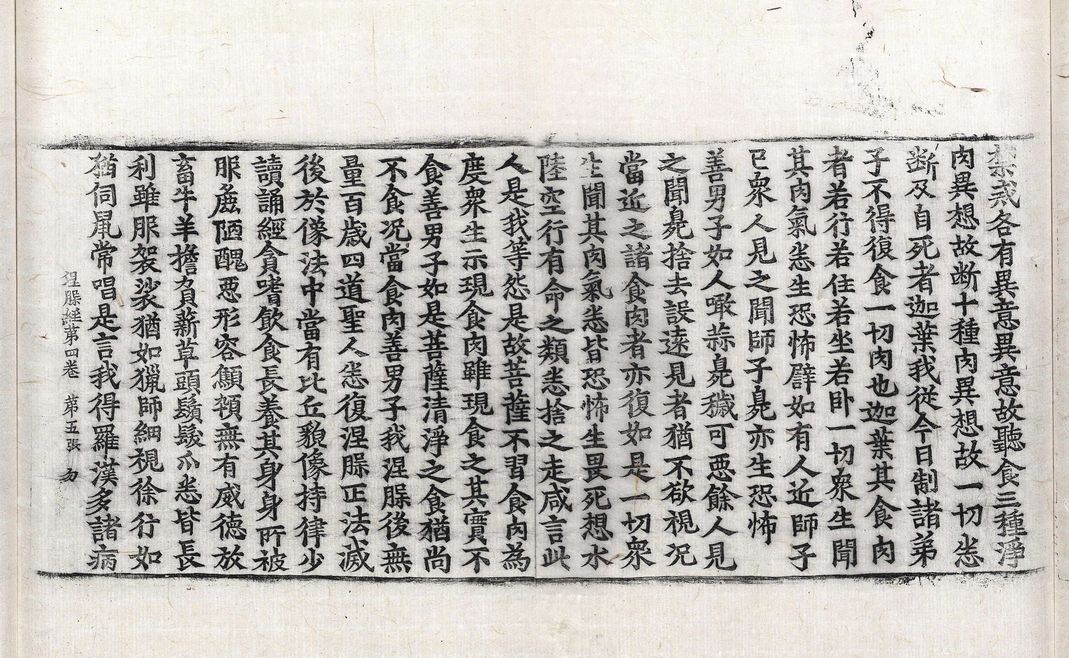 禁戒各有異意異意故聽食三種淨
肉異想故断十種肉異想故一切悉
断及自死者迦葉我從今日制諸弟
子不得復食一切肉也迦葉其食肉
者若行若住若坐若卧一切衆生聞
其肉氣悉生恐怖譬如有人近師子
已衆人見之聞師子臰亦生恐怖
善男子如人噉蒜臰穢可惡餘人見
之聞臰捨去設遠見者猶不欲視况
當近之諸食肉者亦復如是一切衆
生聞其肉氣悉皆恐怖生畏死想水
陸空行有命之類悉捨之走咸言此
人是我等怨是故菩薩不習食肉為
度衆生示現食肉雖現食之其實不
食善男子如是菩薩清淨之食猶尚
不食况當食肉善男子我涅槃後無
量百歳四道聖人悉復涅槃正法滅
後於像法中當有比丘貌像持律少
讀誦經貪嗜飲食長養其身身所被
服麁陋醜惡形容顦顇無有威德放
畜牛羊擔負薪草頭鬚髮爪悉皆長
利雖服袈裟猶如獵師細視徐行如
猫伺鼠常唱是言我得羅漢多諸病
涅槃経第四卷 第五張 勿